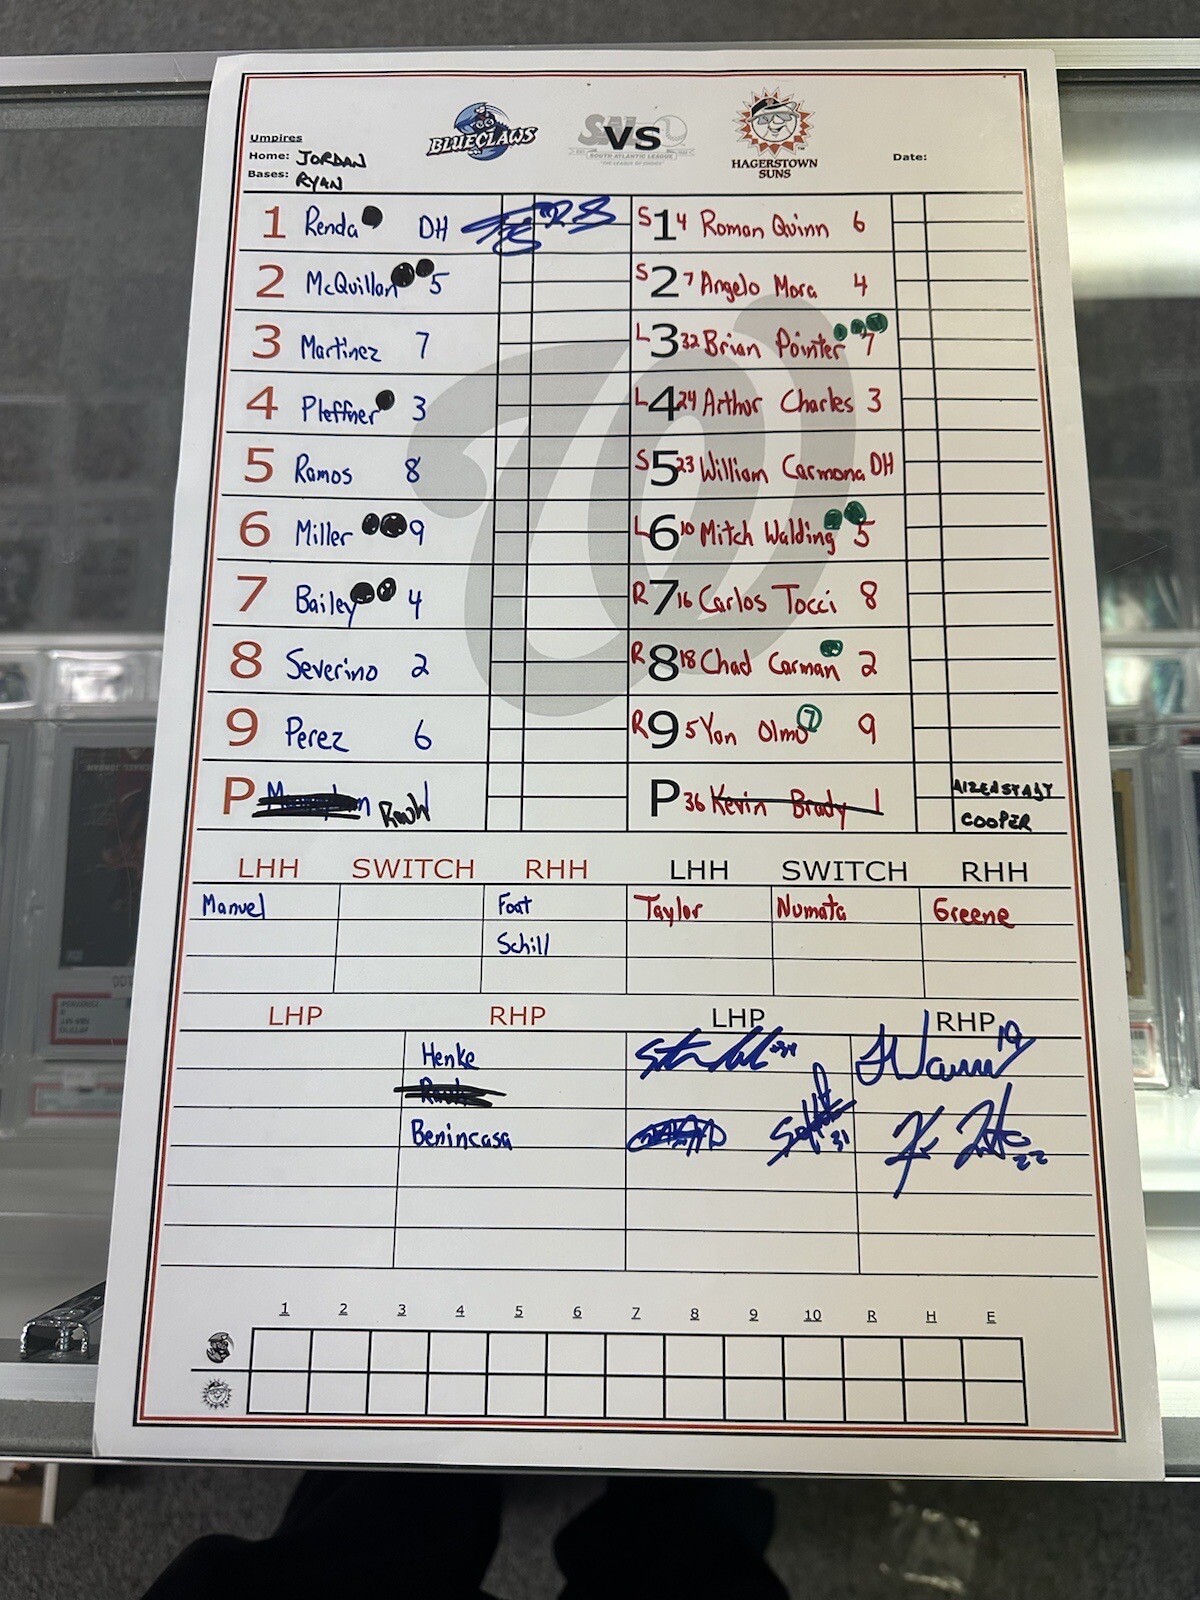 Umpires
Home: JORDAN
Bases: RYAN
BLUECLAWS
VS
SOUTH ATLANTIC LEAGUE
HAGERSTOWN
SUNS
Date:
1 Renda DH
S 1 4 Roman Quinn 6
2 McQuillan 5
S 2 7 Angelo Mora 4
3 Martinez 7
L 3 32 Brian Pointer 7
4 Pleffner 3
L 4 24 Arthur Charles 3
5 Ramos 8
S 5 23 William Carmona DH
6 Miller 9
L 6 10 Mitch Walding 5
7 Bailey 4
R 7 16 Carlos Tocci 8
8 Severino 2
R 8 18 Chad Carman 2
9 Perez 6
R 9 5 Yan Olmo 7 9
P Rauh
P 36 Kevin Brady 1
COOPER
LHH SWITCH RHH LHH SWITCH RHH
Manuel Foat Taylor Numata Greene
Schill
LHP RHP LHP RHP
Henke
Benincasa
19
31
22
1 2 3 4 5 6 7 8 9 10 R H E